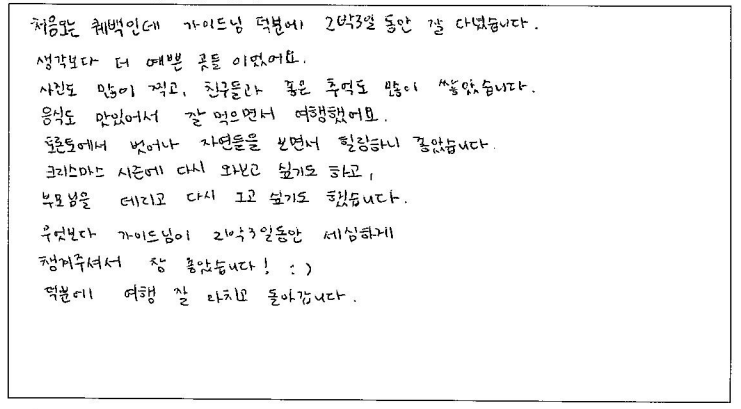 처음오는 퀘백인데 가이드님 덕분에 2박3일 동안 잘 다녔습니다.
생각보다 더 예쁜 곳들 이였어요.
사진도 많이 찍고, 친구들과 좋은 추억도 많이 쌓았습니다.
음식도 맛있어서 잘 먹으면서 여행했어요.
토론토에서 벗어나 자연들을 보면서 힐링하니 좋았습니다.
크리스마스 시즌에 다시 와보고 싶기도 하고,
부모님을 데리고 다시 오고 싶기도 했습니다.
무엇보다 가이드님이 2박3일동안 세심하게
챙겨주셔서 참 좋았습니다! :)
덕분에 여행 잘 마치고 돌아갑니다.